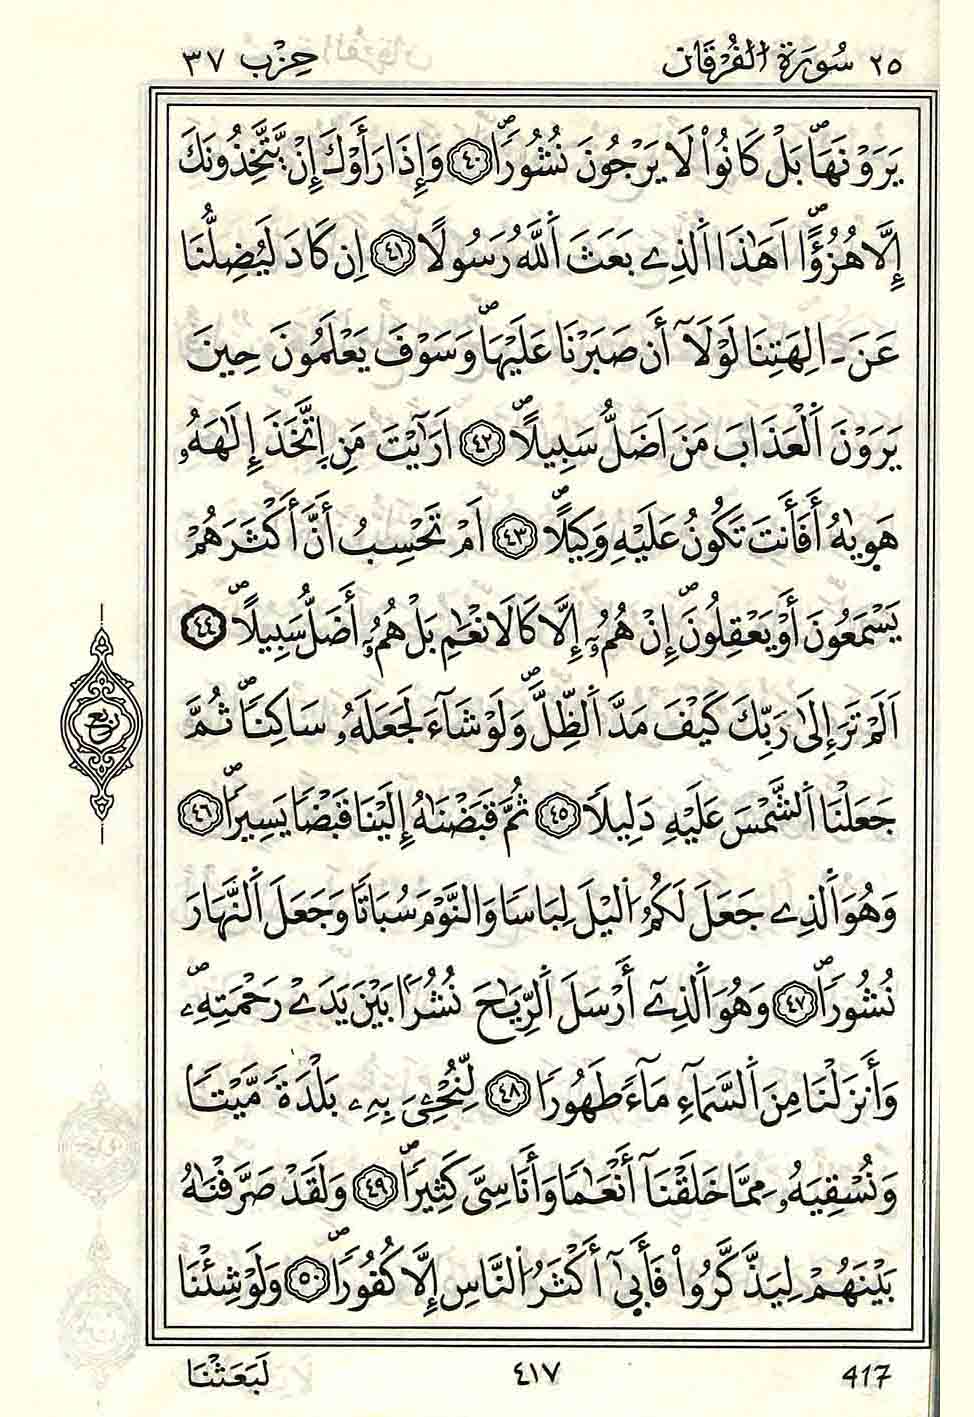 ٢٥ سُورَةُ الْفُرْقَانِ حِزْب ٣٧
يَرَوْنَهَاۖ بَلْ كَانُواْ لَا يَرْجُونَ نُشُوراٗۖ ٤٠ وَإِذَا رَأَوْكَ إِنْ يَّتَّخِذُونَكَ
إِلَّا هُزُؤاًۖ اَهَٰذَا اَ۬لذِے بَعَثَ اَ۬للَّهُ رَسُولاً ٤١ اِن كَادَ لَيُضِلُّنَا
عَنَ اٰلِهَتِنَا لَوْلَآ أَن صَبَرْنَا عَلَيْهَاۖ وَسَوْفَ يَعْلَمُونَ حِينَ
يَرَوْنَ اَ۬لْعَذَابَ مَنَ اَضَلُّ سَبِيلاًۖ ٤٢ اَرَٰٓيْتَ مَنِ اِ۪تَّخَذَ إِلَٰهَهُۥ
هَو۪يٰهُ أَفَأَنتَ تَكُونُ عَلَيْهِ وَكِيلاًۖ ٤٣ اَمْ تَحْسِبُ أَنَّ أَكْثَرَهُمْ
يَسْمَعُونَ أَوْ يَعْقِلُونَۖ إِنْ هُمُۥٓ إِلَّا كَالَانْعَٰمِ بَلْ هُمُۥٓ أَضَلُّ سَبِيلاًۖ ٤٤
اَلَمْ تَرَ إِلَىٰ رَبِّكَ كَيْفَ مَدَّ اَ۬لظِّلَّۖ وَلَوْ شَآءَ لَجَعَلَهُۥ سَاكِناٗۖ ثُمَّ
جَعَلْنَا اَ۬لشَّمْسَ عَلَيْهِ دَلِيلاٗ ٤٥ ثُمَّ قَبَضْنَٰهُ إِلَيْنَا قَبْضاٗ يَسِيراٗۖ ٤٦
وَهُوَ اَ۬لذِے جَعَلَ لَكُمُ اُ۬ليْلَ لِبَاساٗ وَالنَّوْمَ سُبَاتاٗ وَجَعَلَ اَ۬لنَّهَارَ
نُشُوراٗۖ ٤٧ وَهُوَ اَ۬لذِےٓ أَرْسَلَ اَ۬لرِّيَٰحَ نُشُراَۢ بَيْنَ يَدَےْ رَحْمَتِهِۦۖ
وَأَنزَلْنَا مِنَ اَ۬لسَّمَآءِ مَآءٗ طَهُوراٗ ٤٨ لِّنُحْـِۧيَ بِهِۦ بَلْدَةٗ مَّيْتاٗ
وَنُسْقِيَهُۥ مِمَّا خَلَقْنَآ أَنْعَٰماٗ وَأَنَاسِيَّ كَثِيراٗۖ ٤٩ وَلَقَدْ صَرَّفْنَٰهُ
بَيْنَهُمْ لِيَذَّكَّرُواْ فَأَبَىٰٓ أَكْثَرُ اُ۬لنَّاسِ إِلَّا كُفُوراٗۖ ٥٠ وَلَوْ شِئْنَا
ربع
لَبَعَثْنَا ٤١٧ 417